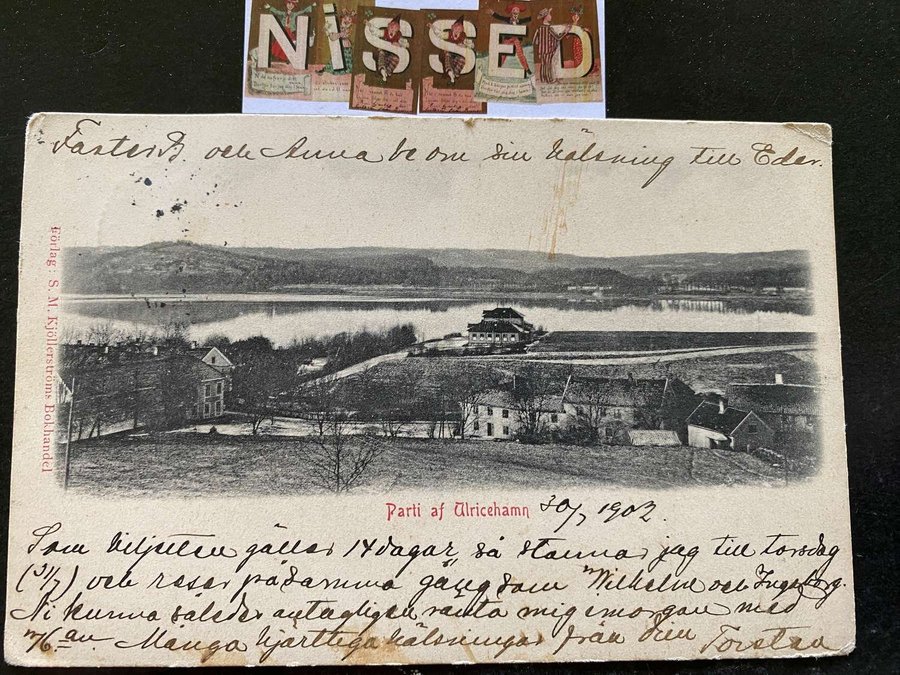 NISSED
Faster B. och Anna be om sin hälsning till Eder.
Förlag: S. M. Kjöllerströms Bokhandel
Parti af Ulricehamn 30/7 1902.
Som biljetten gäller 14 dagar så stannar jag till torsdag
(31/7) och reser på samma gång som Wilhelm och Ingeborg.
Ni kunna således antagligen vänta mig i morgon med
6-an. Många hjärtliga hälsningar från din Torsten